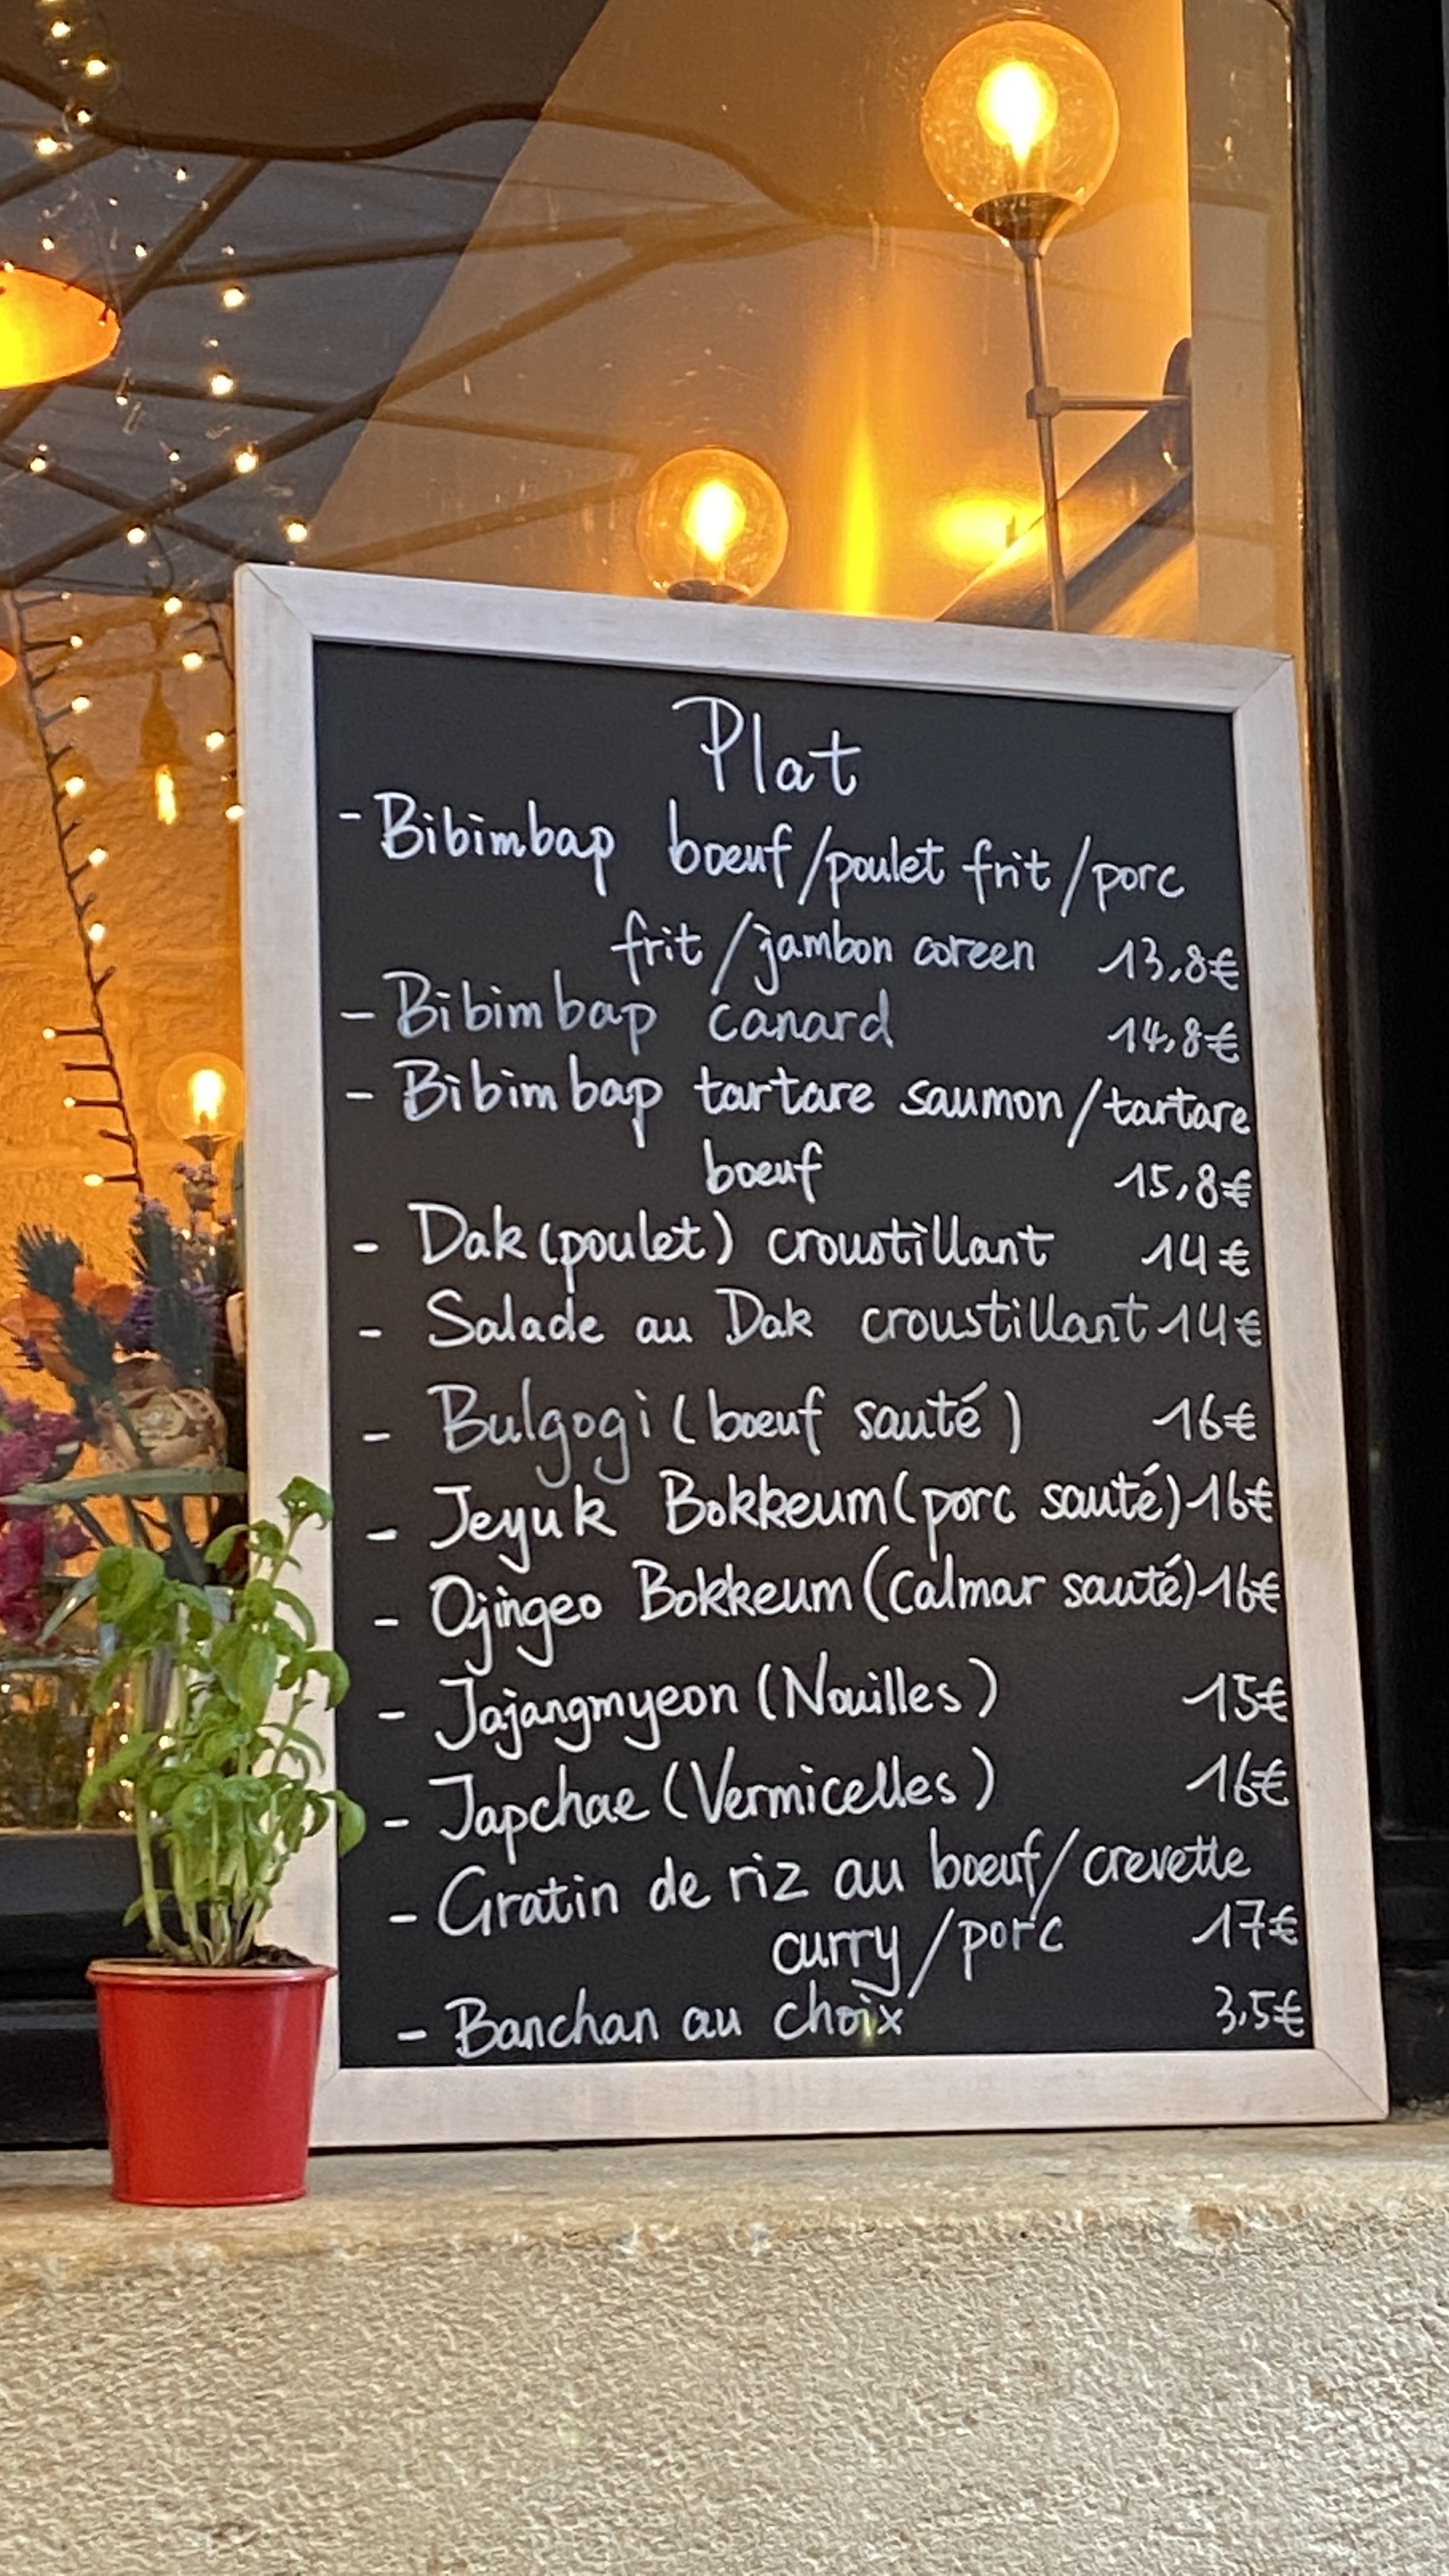 Plat
- Bibimbap boeuf/poulet frit/porc
frit/jambon coreen 13,8€
- Bibimbap canard 14,8€
- Bibimbap tartare saumon/tartare
boeuf 15,8€
- Dak (poulet) croustillant 14€
- Salade au Dak croustillant 14€
- Bulgogi (boeuf sauté) 16€
- Jeyuk Bokkeum (porc sauté) 16€
- Ojingeo Bokkeum (Calmar sauté) 16€
- Jajangmyeon (Nouilles) 15€
- Japchae (Vermicelles) 16€
- Gratin de riz au boeuf/crevette
curry/porc 17€
- Banchan au choix 3,5€